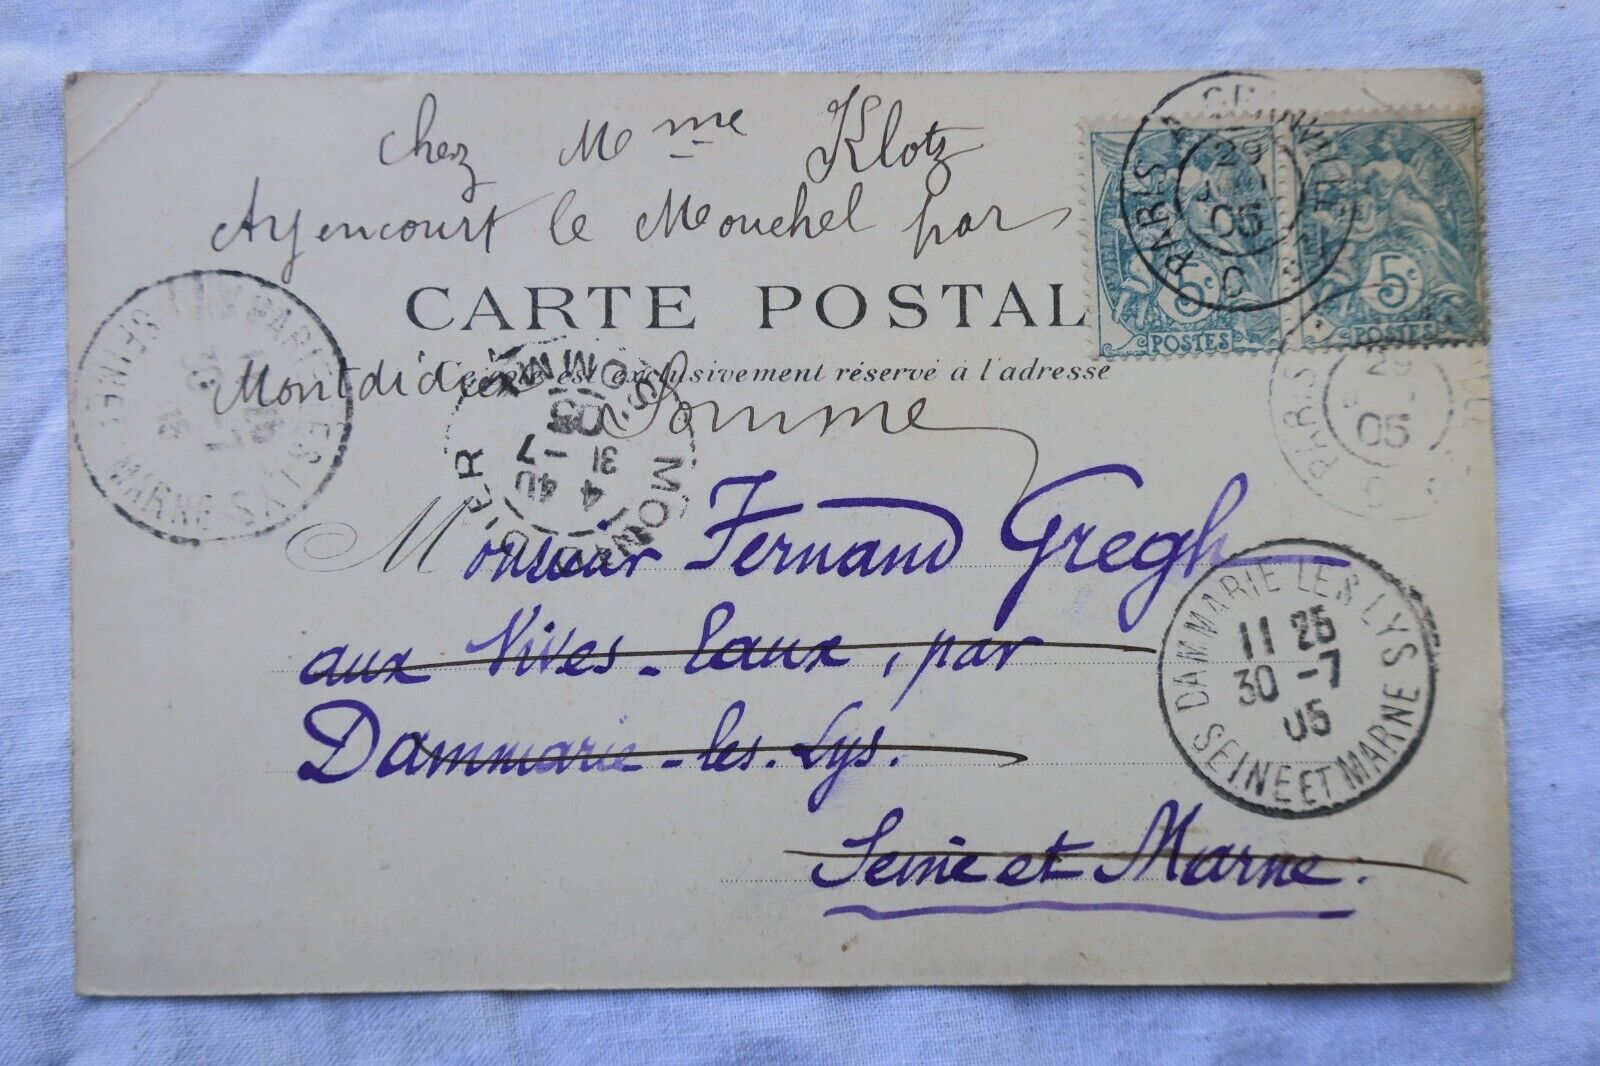 chez Mme Klotz
Ayencourt le Monchel par
CARTE POSTAL
Montdidier
est exclusivement réservé à l'adresse
Somme
Monsieur Fernand Gregh
aux Vives-Eaux, par
Dammarie-les-Lys.
Seine et Marne.
PARIS A GRANVILLE
29
05
5c
POSTES
5c
POSTES
PARIS
29
05
DAMMARIE LES LYS
11 25
30 -7
05
SEINE ET MARNE
MONTDIDIER
4 40
31 -7
05
SOMME
DAMMARIE LES LYS
SEINE ET MARNE